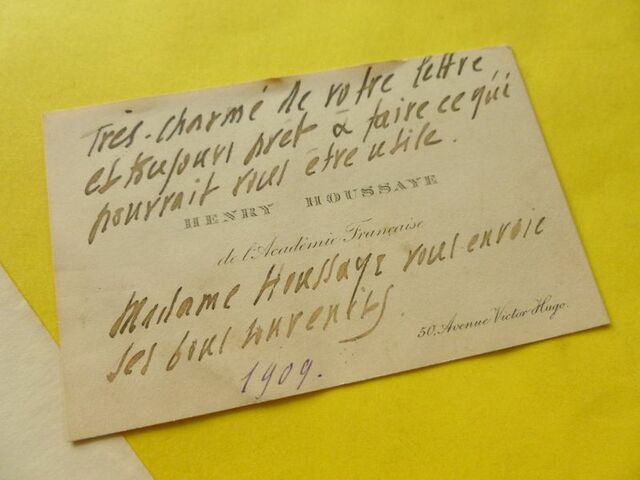 Très-charmé de votre lettre
et toujours prêt à faire ce qui
pourrait vous être utile.
HENRY HOUSSAYE
de l'Académie Française
Madame Houssaye vous envoie
ses bons souvenirs.
50, Avenue Victor Hugo.
1909.